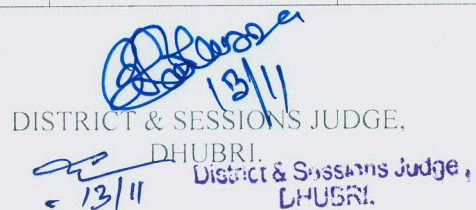 13/11
DISTRICT & SESSIONS JUDGE,
DHUBRI.
13/11
District & Sessions Judge,
DHUBRI.